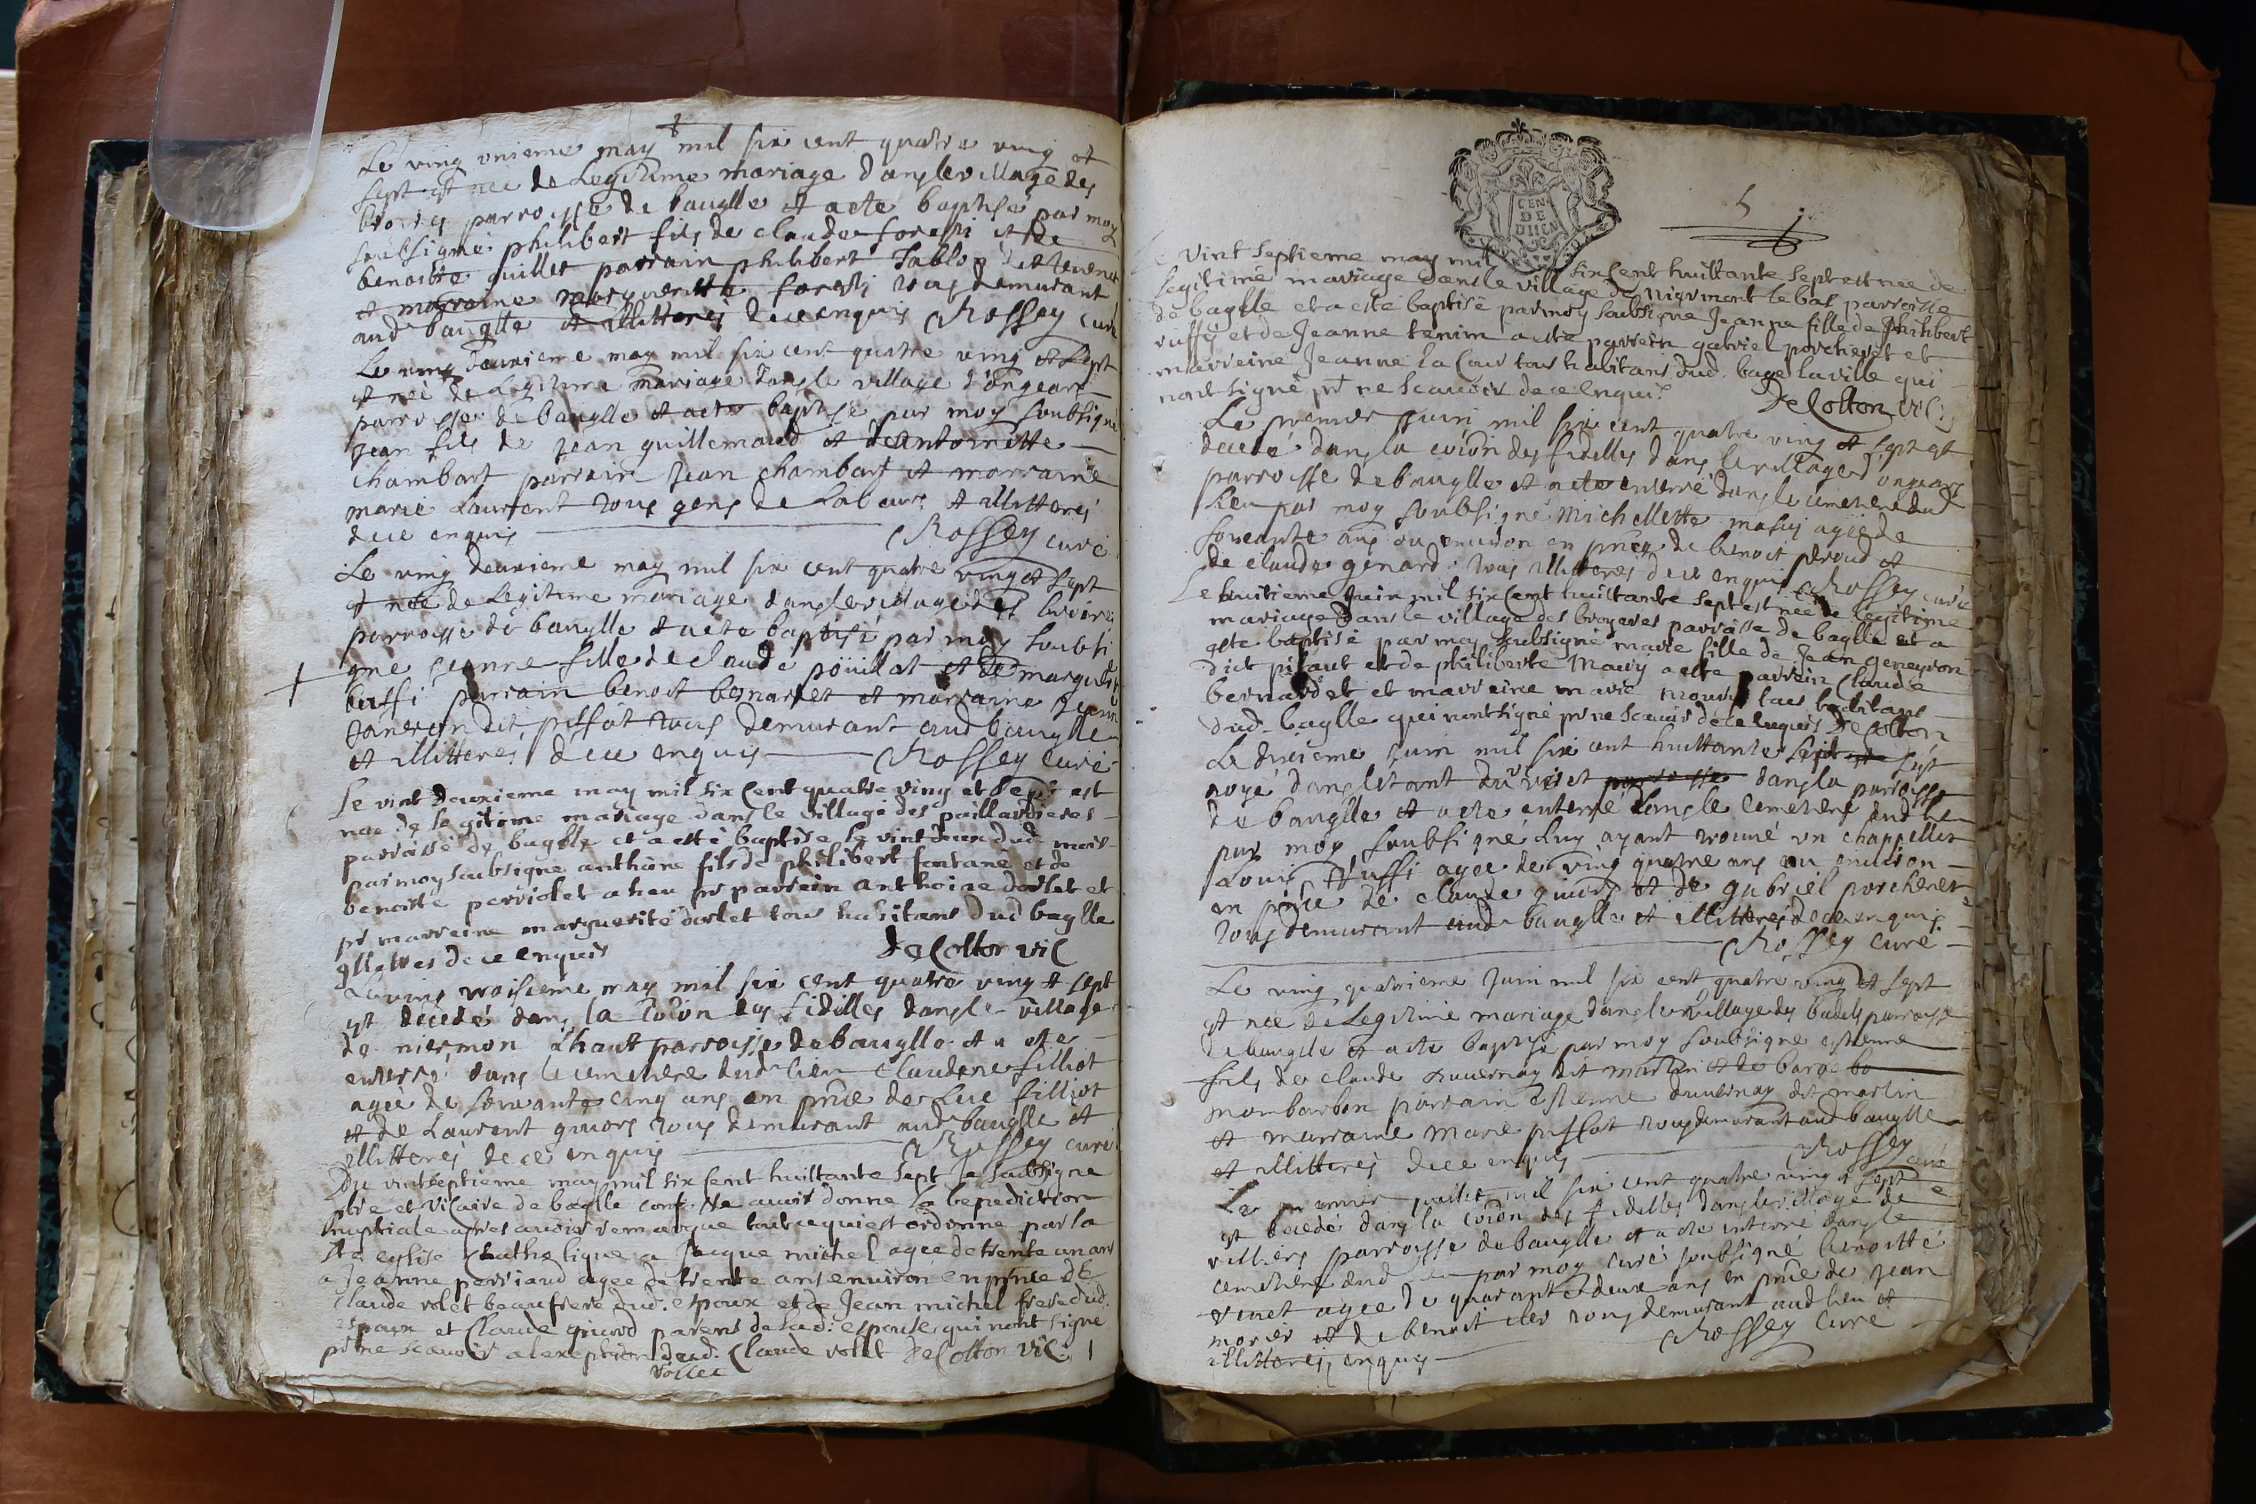 Le ving unieme may mil six cent quatre ving et
sept est nee de Legitime mariage dans le village des
parroisse de bauglle et a ete baptisé par moy
soubsigné philibert fils de claude foresti et de
benoitte guillet parrain philibert Tablon dit
et marraine margueritte foresti tous demurant
aud bauglle et illitteres de ce enquis Rossey curé
Le ving deuxieme may mil six cent quatre ving et sept
et né de Legitime mariage dans le village d'ongeart
parroisse de bauglle et a ete baptisé par moy soubsigné
jean fils de jean guillemaud et de antoinette
chambart parrain jean chambart et marraine
marie Laurent tous gens de Labeur et illitteres
de ce enquis Rossey curé
Le ving deuxieme may mil six cent quatre ving et sept
et née de Legitime mariage dans le village des
parroisse de bauglle et a ete baptisé par moy soubsi
gne jeanne fille de claude pouillat et de
buffi parrain benoit bernardet et marraine
dit pissot tous demurant aud bauglle
et illitteres de ce enquis Rossey curé
Le vint deuxieme may mil six cent quatre ving et sept est
nae de legitime mariage dans le village des paillardieres
parroisse de baglle et a esté baptisé le vint deux dud mois
par moy soubsigne anthoine fils de philibert fontane et de
benoiste perriolet a heu pr parrein anthoine dorlet et
pr marreine marguerite dorlet tous habitans dud baglle
de ce enquis de Colton vic
Le ving troisieme may mil six cent quatre ving et sept
est decedé dans la coion des fidelles dans le village
de niermon Lhaut parroisse de bauglle et a ete
enterre dans le cemetiere dud lieu claudene filliot
agee de soixante cinq ans en pnce de Luc filliot
et de Laurent guiors tous demurant aud bauglle et
illitteres de ce enquis Rossey curé
Du vint septieme may mil six cent huittante sept Je soubsigne
pbre et vicaire de baglle avoir donne la benediction
nuptiale apres avoir remarque tout ce qui est ordonne par la
Ste eglise Catholique a Jacque michel agee de trente un ans
a Jeanne perriaud agee de trente ans environ en pnce de
Claude volet beaufrere dud. espoux et de Jean michel frere dud.
espoux et Claude guiard parens de lad. espouse qui nont signe
pr ne scavoir a lexeption dud. Claude volet de Colton vic
vollet
5
CEN
DE
DIICN
Le vint septieme may mil six cent huittante sept est nee de
legitime mariage dans le village de niermont le bas parroisse
de baglle et a este baptisé par moy soubsigne Jeanne fille de philibert
ruffy et de Jeanne tenin a este parrein gabriel porcheret et
marreine Jeanne la Cour tous habitans dud. bage la ville qui
nont signé pr ne scavoir de ce enquis
de Colton vic
Le premier juin mil six cent quatre ving et sept est
decedé dans la coion des fidelles dans le village d'ongeart
parroisse de bauglle et a ete enterré dans le cemetiere dud
Lieu par moy soubsigné michellette agée de
soixante ans ou environ en pnce de benoit peroud et
de claude genard tous illitteres de ce enquis Rossey curé
Le huitieme juin mil six cent huittante sept est née de legitime
mariage dans le village des broyeres parroisse de baglle et a
este baptisé par moy soubsigne marie fille de Jean geneyron
dict pissaut et de philiberte Maury a este parrein Claude
bernardet et marreine marie tous habitans
dud. baglle qui nont signé pr ne scavoir de ce enquis de Colton
Le dixieme juin mil six cent huittante sept est
noyé dans lestant du dans la parroisse
de bauglle et a ete enterré dans le cemetiere dud lieu
par moy soubsigné Luy ayant trouvé un chappellet
Louis Ruffi agee de ving quatre ans ou environ
en pnce de claude guiors et de gabriel porcheret
tous demurant aud bauglle et illitteres de ce enquis
Rossey curé
Le ving quatrieme juin mil six cent quatre ving et sept
est née de Legitime mariage dans le village des parroisse
de bauglle et a ete baptisé par moy soubsigne estienne
fils de claude duvernay dit martin et de barbe
mombarbon parrain estienne duvernay dit martin
et marraine marie pissot tous demurant aud bauglle
et illitteres de ce enquis Rossey curé
Le premier juillet mil six cent quatre ving et sept
est decedé dans la coion des fidelles dans le village de
villiers parroisse de bauglle et a ete enterré dans le
cemetiere dud lieu par moy curé soubsigné benoitte
agee de quarante deux ans en pnce de jean
morier et de benoit tous demurant aud lieu et
illitteres enquis Rossey curé